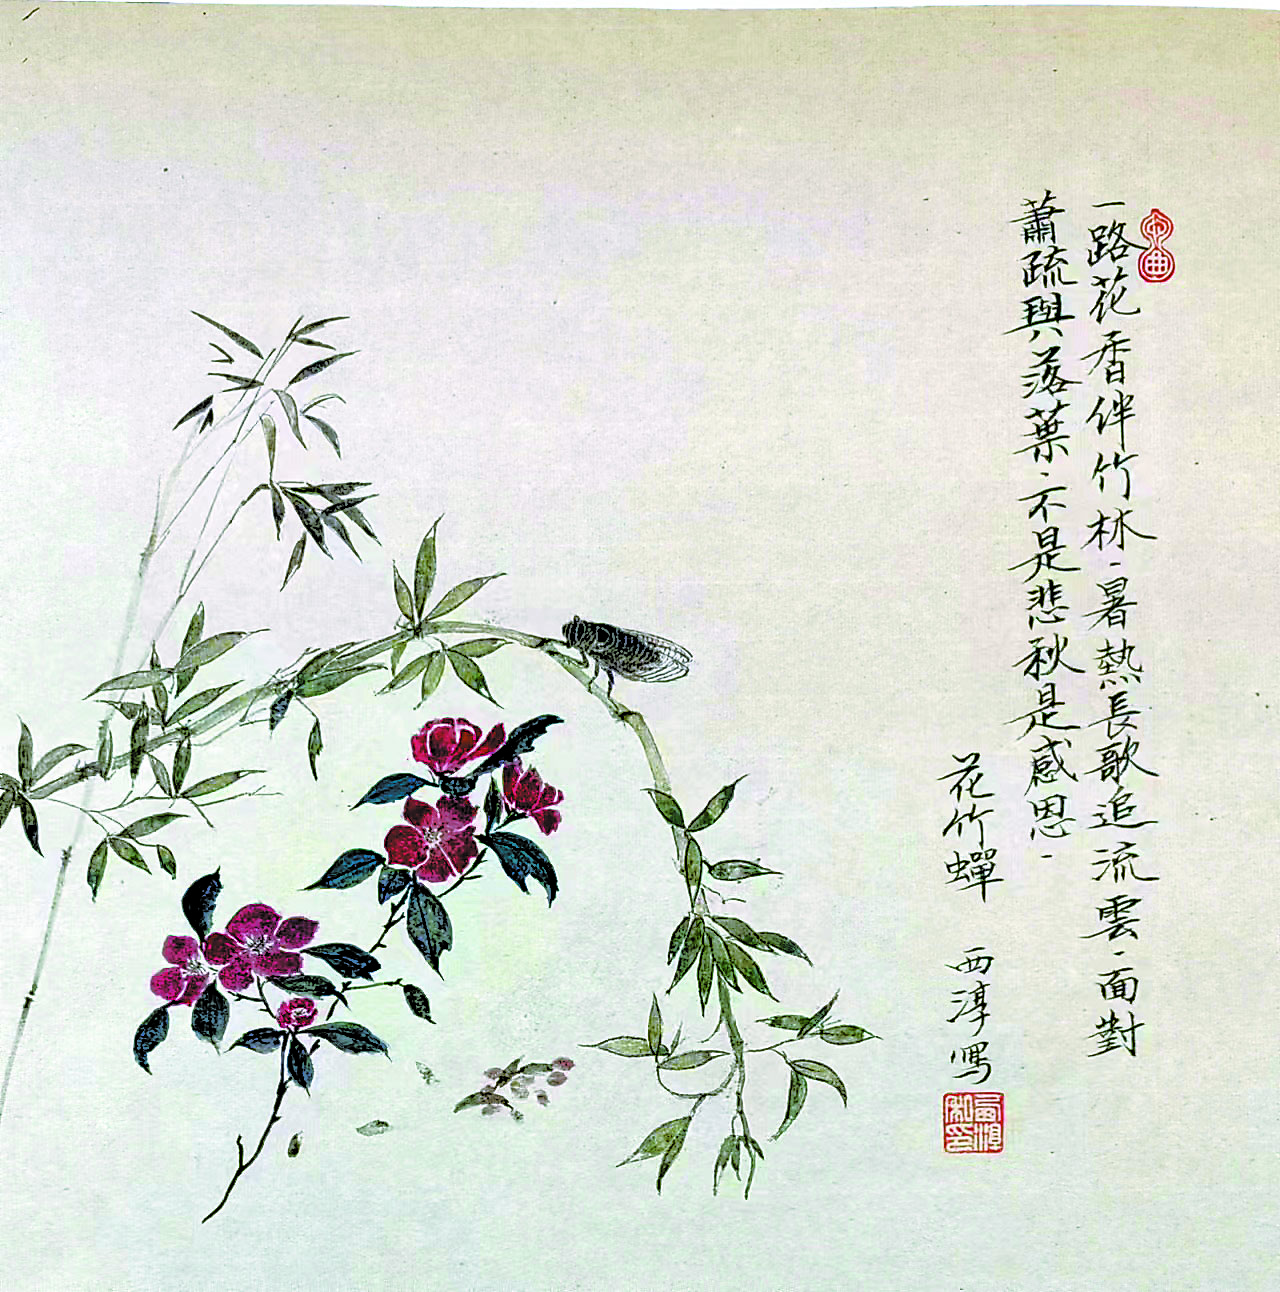 一路花香伴竹林·暑熱長歌追流雲·面對
蕭疏與落葉·不是悲秋是感恩·
花竹蟬 西淳寫